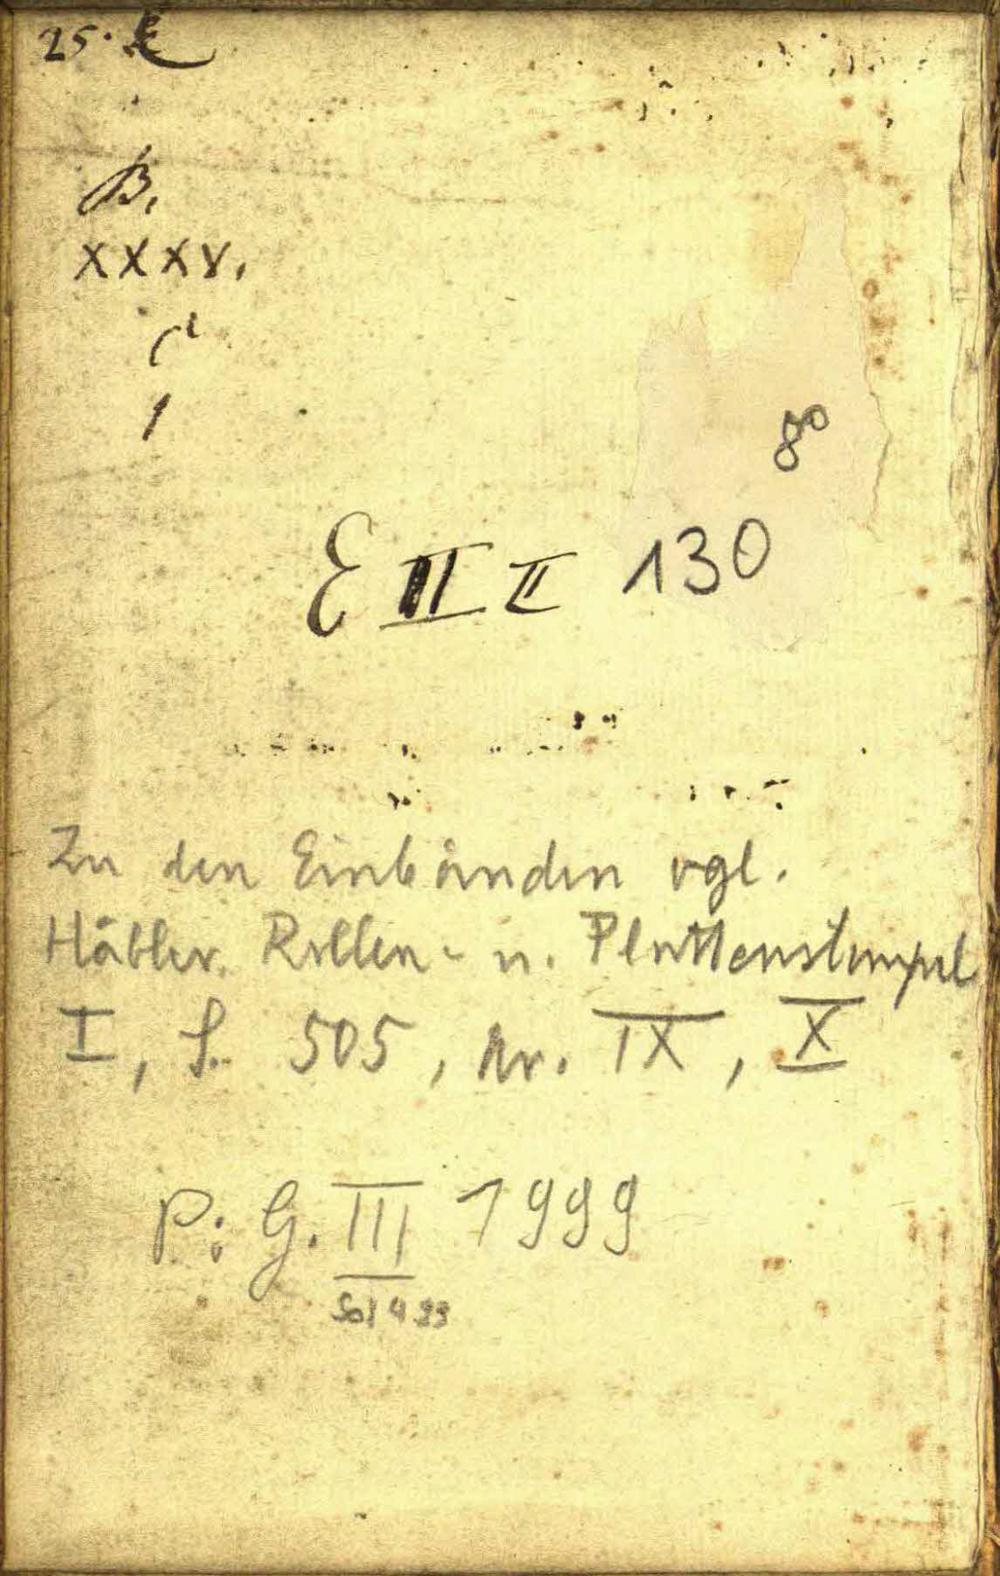 25.
B.
XXXV.
1
8°
E III II 130
Zu den Einbänden vgl.
Häbler. Rollen- u. Plattenstempel
I, S. 505, Nr. IX, X
P: G. III 1999